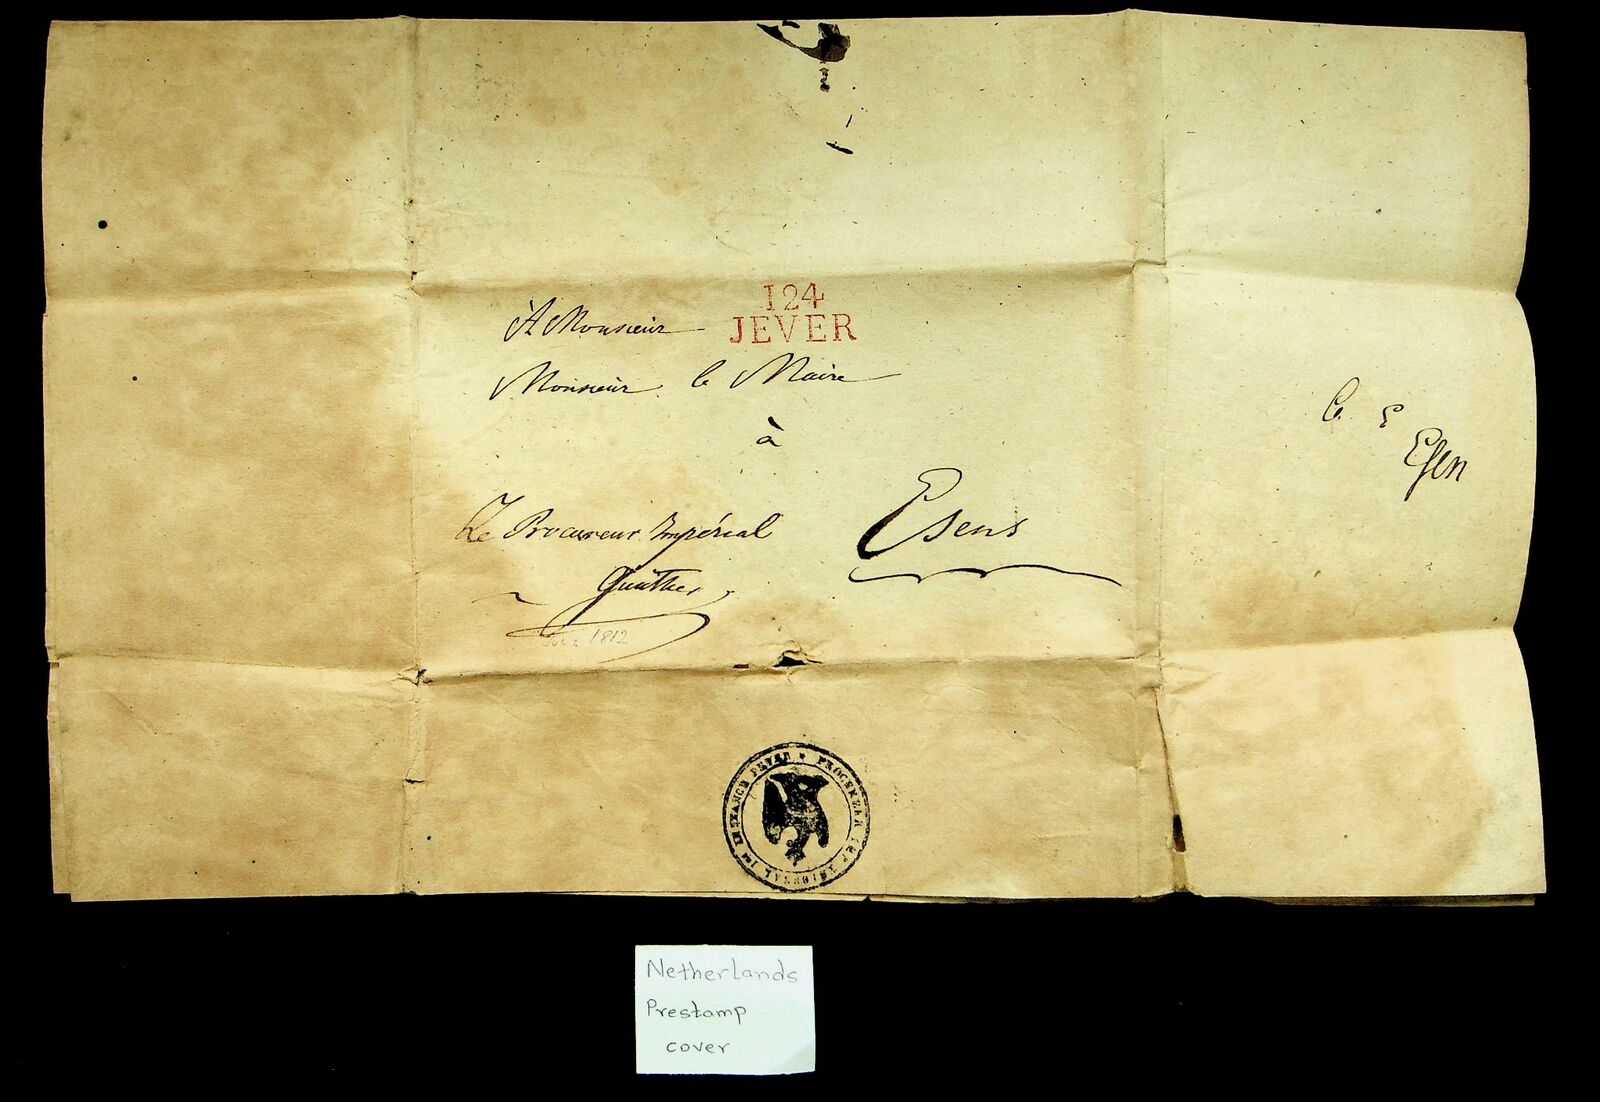 124
JEVER
À Monsieur
Monsieur le Maire
à
Esens
Le Procureur Impérial
Günther
1812
Esen
PROCUREUR IMP
Netherlands
Prestamp
cover